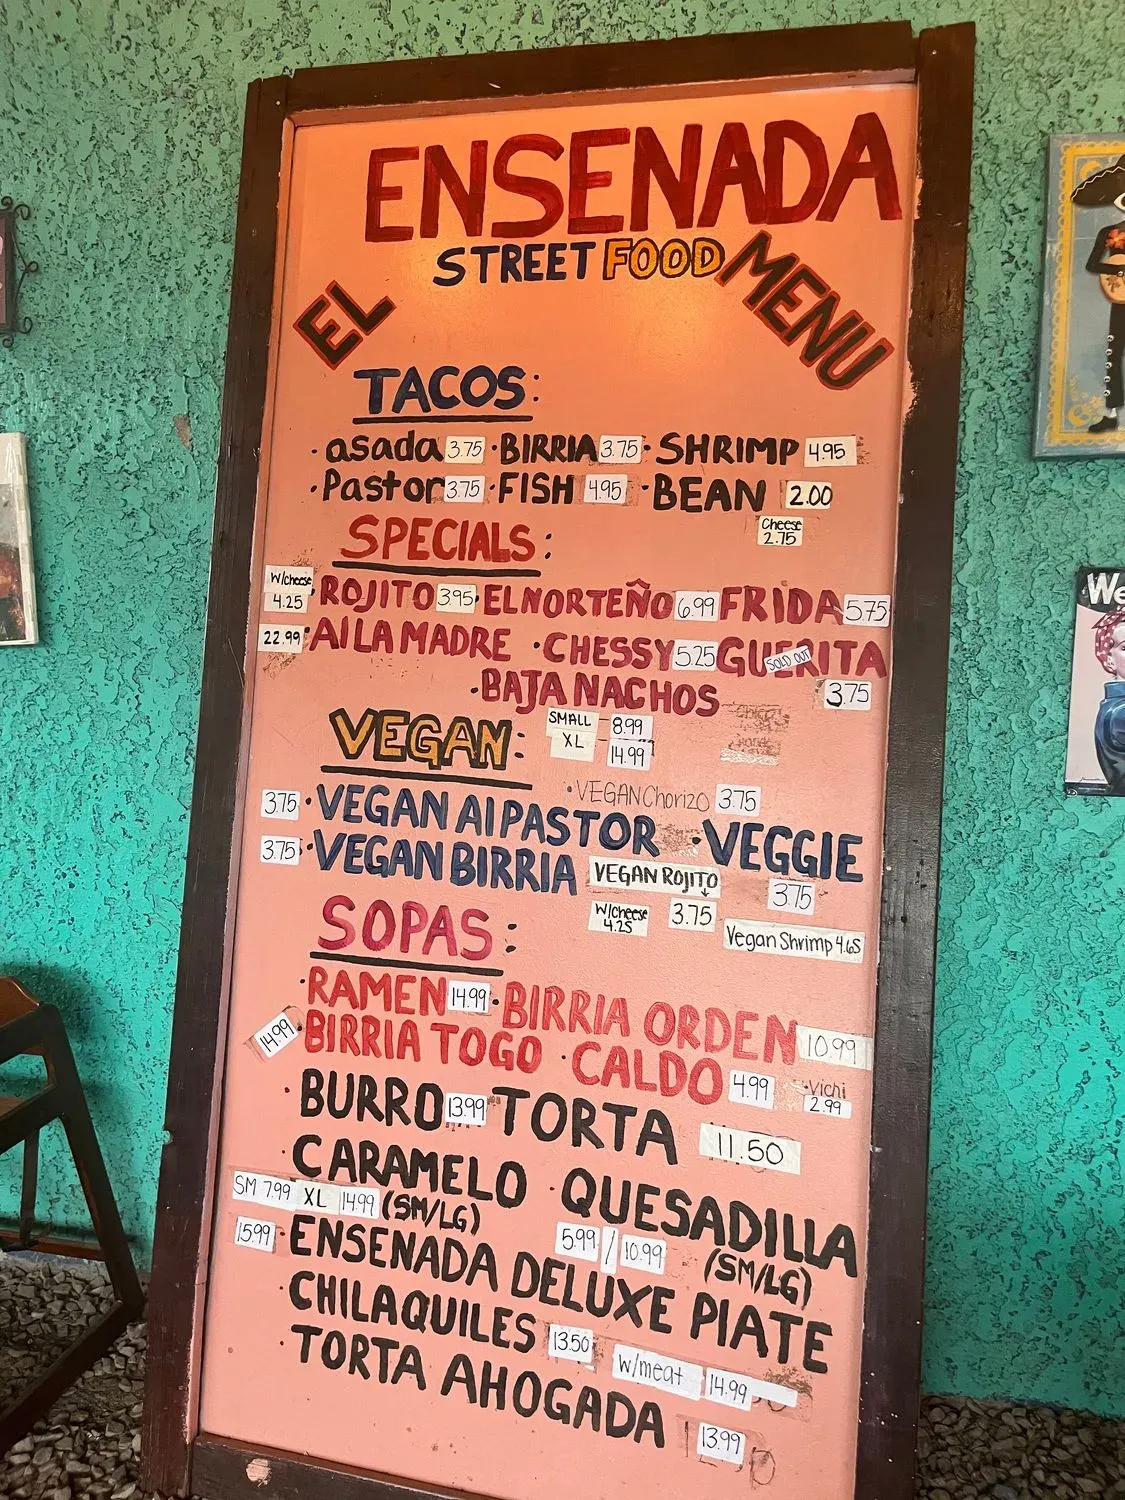 ENSENADA
STREET FOOD
EL MENU
TACOS:
· asada 3.75 · BIRRIA 3.75 · SHRIMP 4.95
· Pastor 3.75 · FISH 4.95 · BEAN 2.00
Cheese 2.75
SPECIALS:
W/cheese 4.25 · ROJITO 3.95 · ELNORTEÑO 6.99 FRIDA 5.75
22.99 · AI LA MADRE · CHESSY 5.25 GUERITA SOLD OUT
· BAJA NACHOS 3.75
SMALL - 8.99
XL 14.99
VEGAN:
· VEGAN Chorizo 3.75
3.75 · VEGAN AI PASTOR · VEGGIE
3.75 · VEGAN BIRRIA VEGAN ROJITO 3.75
W/cheese 4.25 3.75 Vegan Shrimp 4.65
SOPAS:
· RAMEN 14.99 · BIRRIA ORDEN 10.99
14.99 · BIRRIA TOGO · CALDO 4.99 · Vichi
2.99
· BURRO 13.99 · TORTA 11.50
· CARAMELO · QUESADILLA
SM 7.99 XL 14.99 (SM/LG) 5.99 / 10.99 (SM/LG)
15.99 · ENSENADA DELUXE PIATE
· CHILAQUILES 13.50 w/meat 14.99
· TORTA AHOGADA 13.99
We